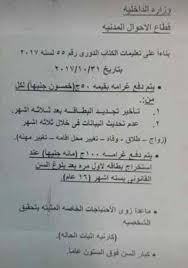 وزاره الداخليه
قطاع الاحوال المدنيه
بناءا على تعليمات الكتاب الدورى رقم ٥٥ لسنه ٢٠١٧
بتاريخ ٢٠١٧/١٠/٣١
يتم دفع غرامه بقيمه ٥٠ج (خمسون جنيها) لكل
من:
١ تأخير تجديد البطاقه بعد ثلاثه اشهر
٢ عدم تحديث البيانات فى خلال ثلاثه اشهر
(زواج – طلاق – وفاه – تغيير محل اقامه – تغيير مهنه)
يتم دفع غرامه ١٠٠ج (مائه جنيها) عند
استخراج بطاقه لاول مره بعد بلوغ السن
القانونى بسته اشهر (١٦ عام)
ماعدة ذوى الأحتياجات الخاصه المثبته بتحقيق
الشخصيه
(كارنيه اثبات الحاله)
كبار السن فوق الستون عاما